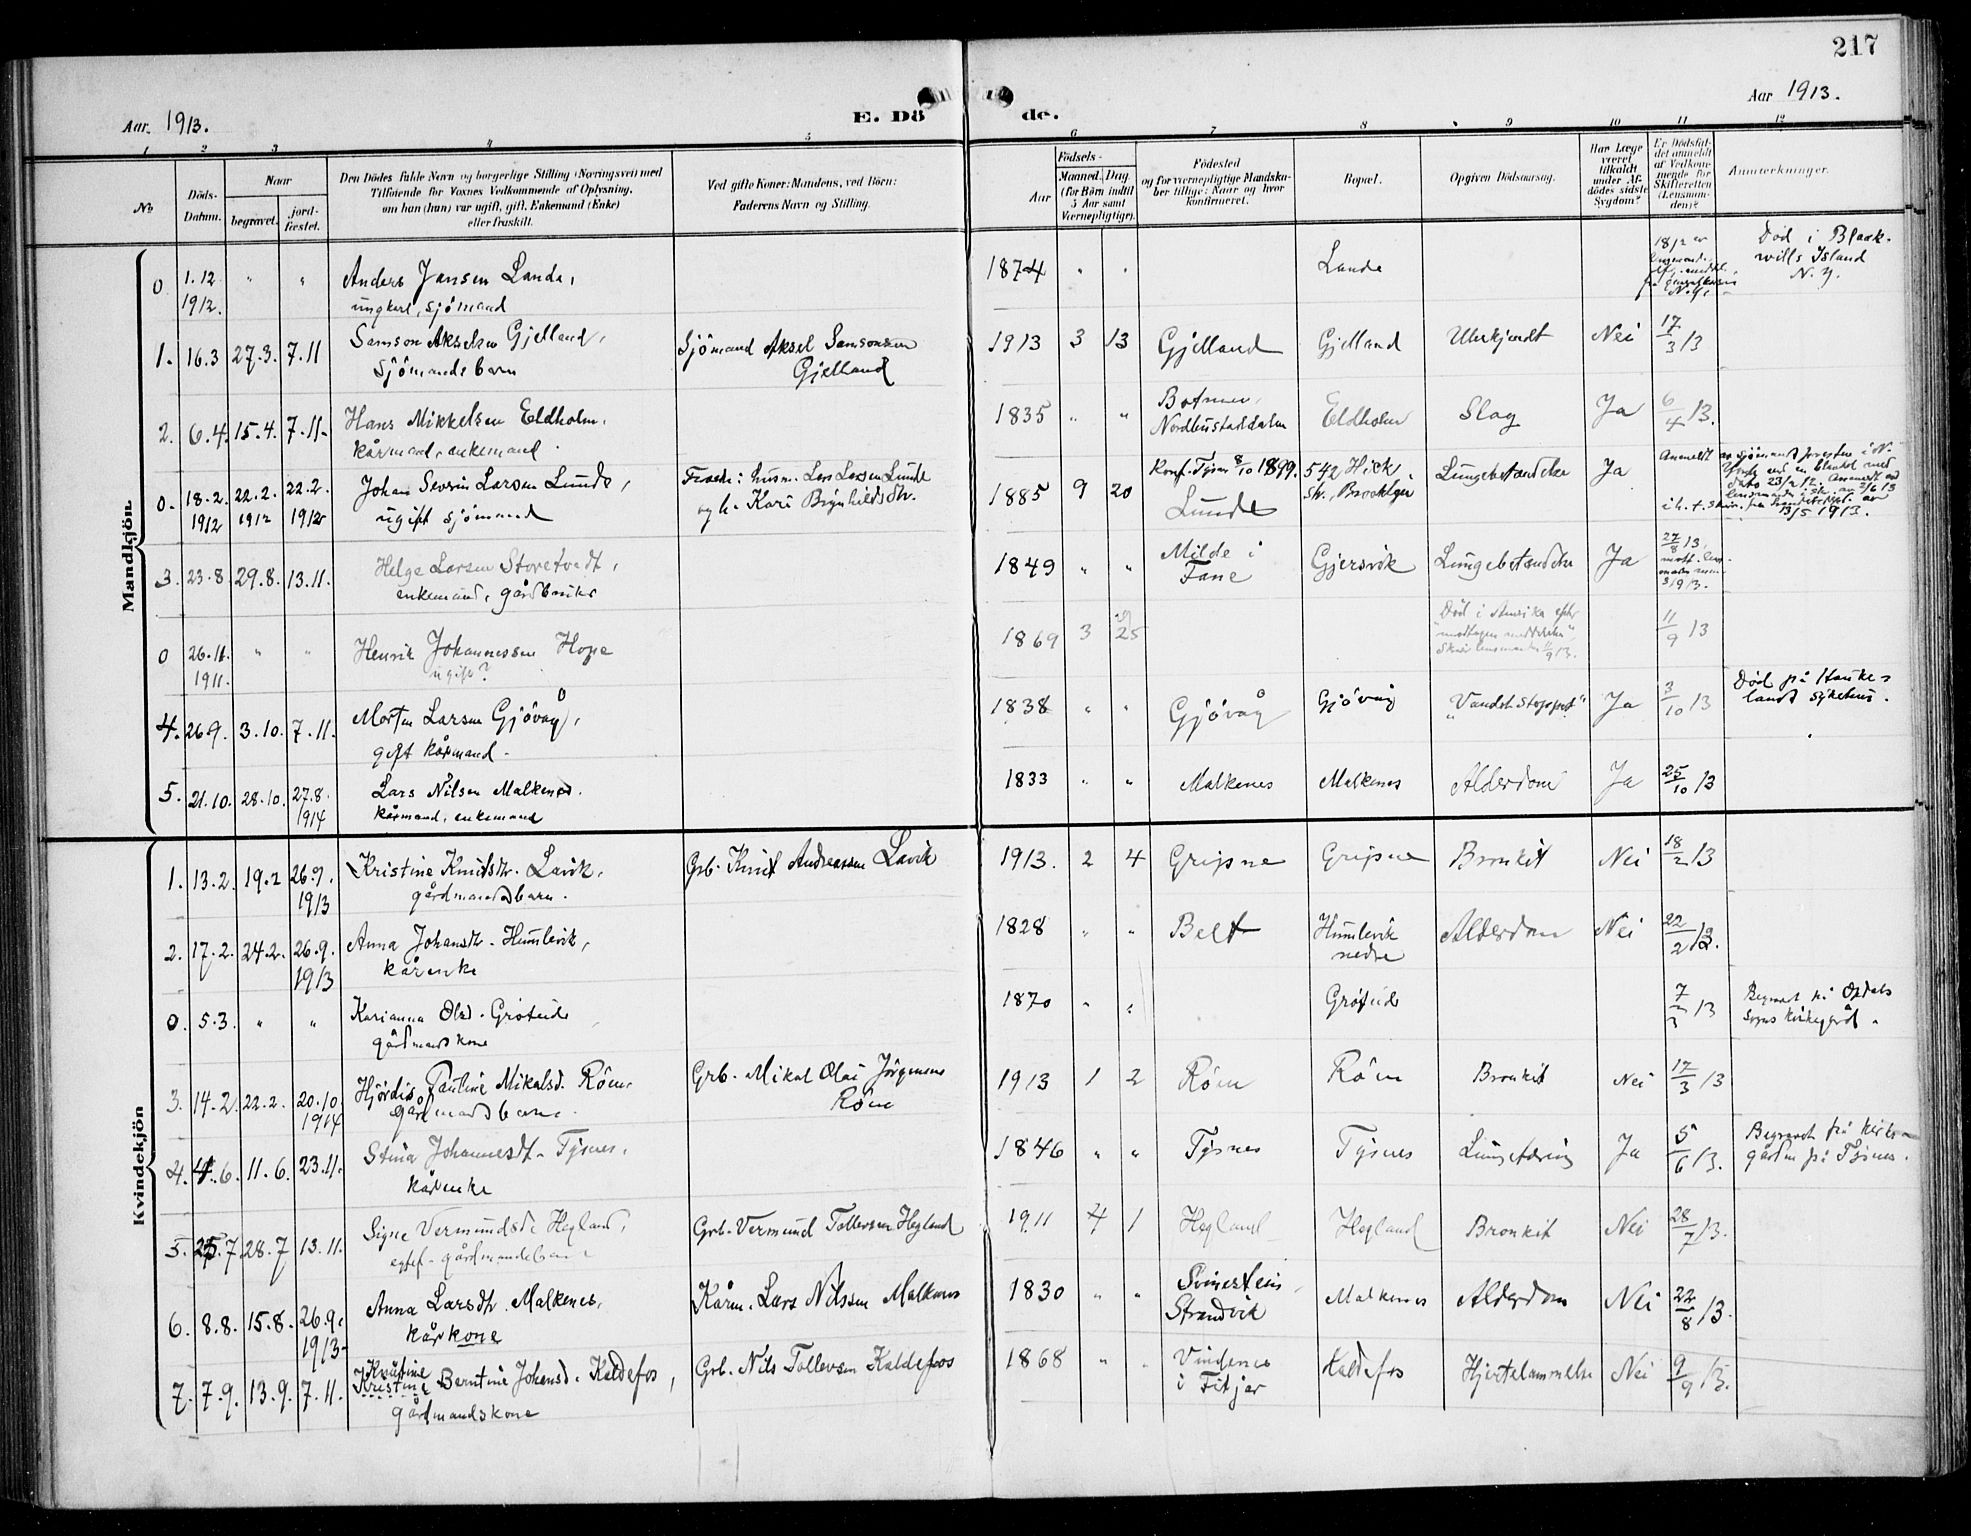 217
Aar. 1913.
E. Döde.
Aar 1913.
1 2 3 4 5 6 7 8 9 10 11 12
No
Döds-Datum.
Naar
begravet.
jord-fæstet.
Den Dödes fulde Navn og borgerlige Stilling (Næringsvei) med
Tilföiende for Voxnes Vedkommende af Oplysning,
om han (hun) var ugift, gift, Enkemand (Enke)
eller fraskilt.
Ved gifte Koner: Mandens, ved Börn:
Faderens Navn og Stilling.
Födsels-
Aar
Maaned. Dag.
(for Börn indtil
5 Aar samt
Værnepligtige).
Födested
og for værnepligtige Mandska-
ber tillige: Naar og hvor
konfirmeret.
Bopæl.
Opgiven Dödsaarsag.
Har Læge
været
tilkaldt
under Af-
dödes sidste
Sygdom?
Er Dödsfal-
det anmeldt
for Vedkom-
mende
Skifteretten
(Lensman-
den)?
Anmærkninger.
Mandkjön.
0 1.12 1912. " " Anders Jansen Lande,
ungkarl, sjömand
1874 " " Lande
Död i Blaak-
wills Island
N.Y.
1. 16.3 27.3. 7.11 Samson Akselsen Gjelland,
Sjömands barn
Sjömand Aksel Samsonsen
Gjelland
1913 3 13 Gjelland Gjelland Ukjendt Nei 17/3 13
2. 6.4. 15.4. 7.11. Hans Mikkelsen Eldholm,
kårmand, enkemand.
1835 " " Nordhustaddalen Eldholm Slag Ja 6/4 13.
0. 18.2. 1912 22.2. 1912 22.2. 1912 Johan Severin Larsen Lunde,
ugift sjömand
husm. Lars Larsen Lunde
og h. Kari Brynhildsdtr.
1885 9 20 Konf. Tysnes 8/10 1899.
Lunde
542 Hick
Str. Brooklyn
Lungebetændelse Ja
13/5 1913.
3. 23.8 29.8. 13.11. Helge Larsen Storetvedt,
enkemand, gårdbruker
1849 " " Milde i
Fane
Gjersvik Lungebetændelse Ja 27/8 13,
0 26.11. 1911. " " Henrik Johannessen Hope
ugift?
1869 3 25
Död i Amerika efter
"modtagen meddelelse"
11/9 13
4. 26.9. 3.10. 7.11. Morten Larsen Gjövåg,
gift kårmand.
1838 " " Gjövåg Gjövåg "Vandstoppet" Ja 3/10 13
Död på Hauke-
land sykehus.
5. 21.10. 28.10. 27.8. 1914 Lars Nilsen Malkenes.
kårmand, enkemand
1833 " " Malkenes Malkenes Alderdom Ja 25/10 13
Kvindekjön
1. 13.2. 19.2 26.9. 1913 Kristine Knutsdtr. Lavik,
gårdmandsbarn.
Grb. Knut Andreassen Lavik
1913. 2 4 Gripne Gripne Bronkit Nei 18/2 13
2. 17.2. 24.2. 26.9. 1913 Anna Johansdtr. Humlevik,
kårenke
1828 " " Belt Humlevik
nedre
Alderdom Nei 22/2 13.
0. 5.3. " " Karianna Olsd. Gröteide
gårdmandskone
1870 " " Gröteide 7/3 13
Begravet på Opdals
Sogns kirkegård.
3. 14.2. 22.2. 20.10. 1914 Hjördis Pauline Mikalsd. Röen,
gårdmandsbarn.
Grb. Mikal Olai Jörgensen
Röen
1913 1 2 Röen Röen Bronkit Nei 17/3 13
4. 4.6. 11.6. 23.11. Stina Johannesdt. Tysnes,
kårenke
1846 " " Tysnes Tysnes Ja 5/6 13.
Begravet på kirke-
gården på Tysnes.
5. 25.7 28.7 13.11. Signe Vermundsd. Hegland,
egtef. gårdmandsbarn
Grb. Vermund Tollevsen Hegland
1911 4 1 Hegland Hegland Bronkit Nei 28/7 13.
6. 8.8. 15.8. 26.9. 1913. Anna Larsdtr. Malkenes,
kårkone
Kårm. Lars Nilssen Malkenes
1830 " " Strandvik Malkenes Alderdom Nei 22/8 13.
7. 7.9. 13.9. 7.11. Kristine
Kristine Berntine Johansd. Kaldefos,
gårdmandskone
Grb. Nils Tollevsen Kaldefos
1868 " " Vindenes
i Fitjar
Kaldefos Hjertelammelse Nei 9/9 13.